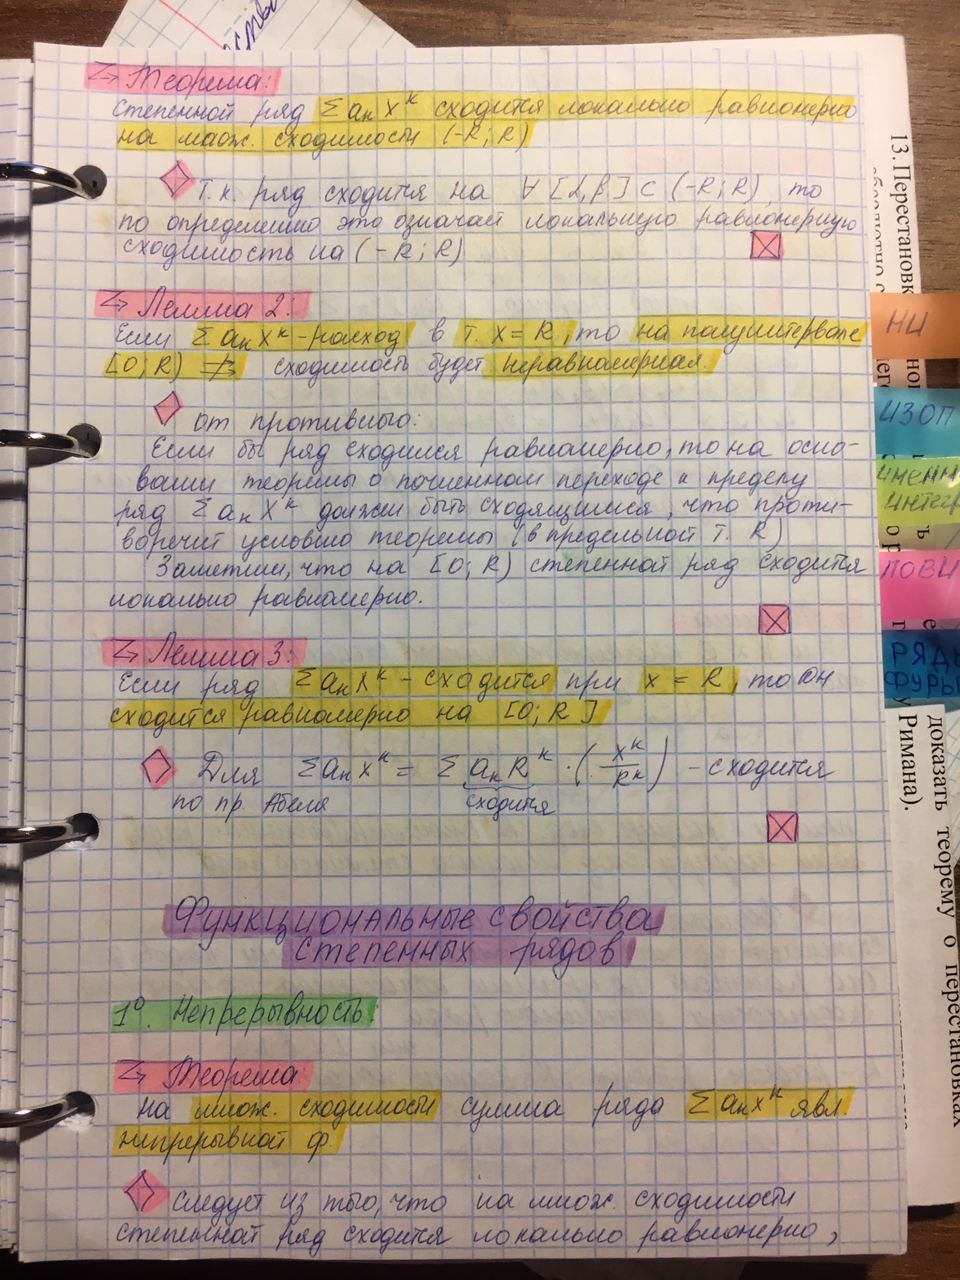 Теорема:
степенной ряд Σ aₖ xᵏ сходится локально равномерно
на множ. сходимости (-R; R)
Т.к. ряд сходится на ∀ [α, β] ⊂ (-R; R), то
по определению это означает локальную равномерную
сходимость на (-R; R)
Лемма 2:
Если Σ aₖ xᵏ - расход в т. x = R, то на полуинтервале
[0; R) сходимость будет неравномерная.
от противного:
Если бы ряд сходился равномерно, то на осно-
вании теоремы о почленном переходе к пределу
ряд Σ aₖ xᵏ должен быть сходящимся, что проти-
воречит условию теоремы (в предельной т. R)
Заметим, что на [0; R) степенной ряд сходится
локально равномерно.
Лемма 3:
Если ряд Σ aₖ xᵏ - сходится при x = R, то он
сходится равномерно на [0; R]
Для Σ aₖ xᵏ = Σ aₖ Rᵏ · (xᵏ/Rᵏ) - сходится
по пр. Абеля сходится
Функциональные свойства
степенных рядов
1º. Непрерывность:
Теорема:
на множ. сходимости сумма ряда Σ aₖ xᵏ явл.
непрерывной ф.
следует из того, что на множ. сходимости
степенной ряд сходится локально равномерно,
13. Перестановк
доказать теорему о перестановках
Римана).
НИ
ИЗОП
ИНТЕГР
ПОВИ
РЯДЫ
ФУРЬЕ